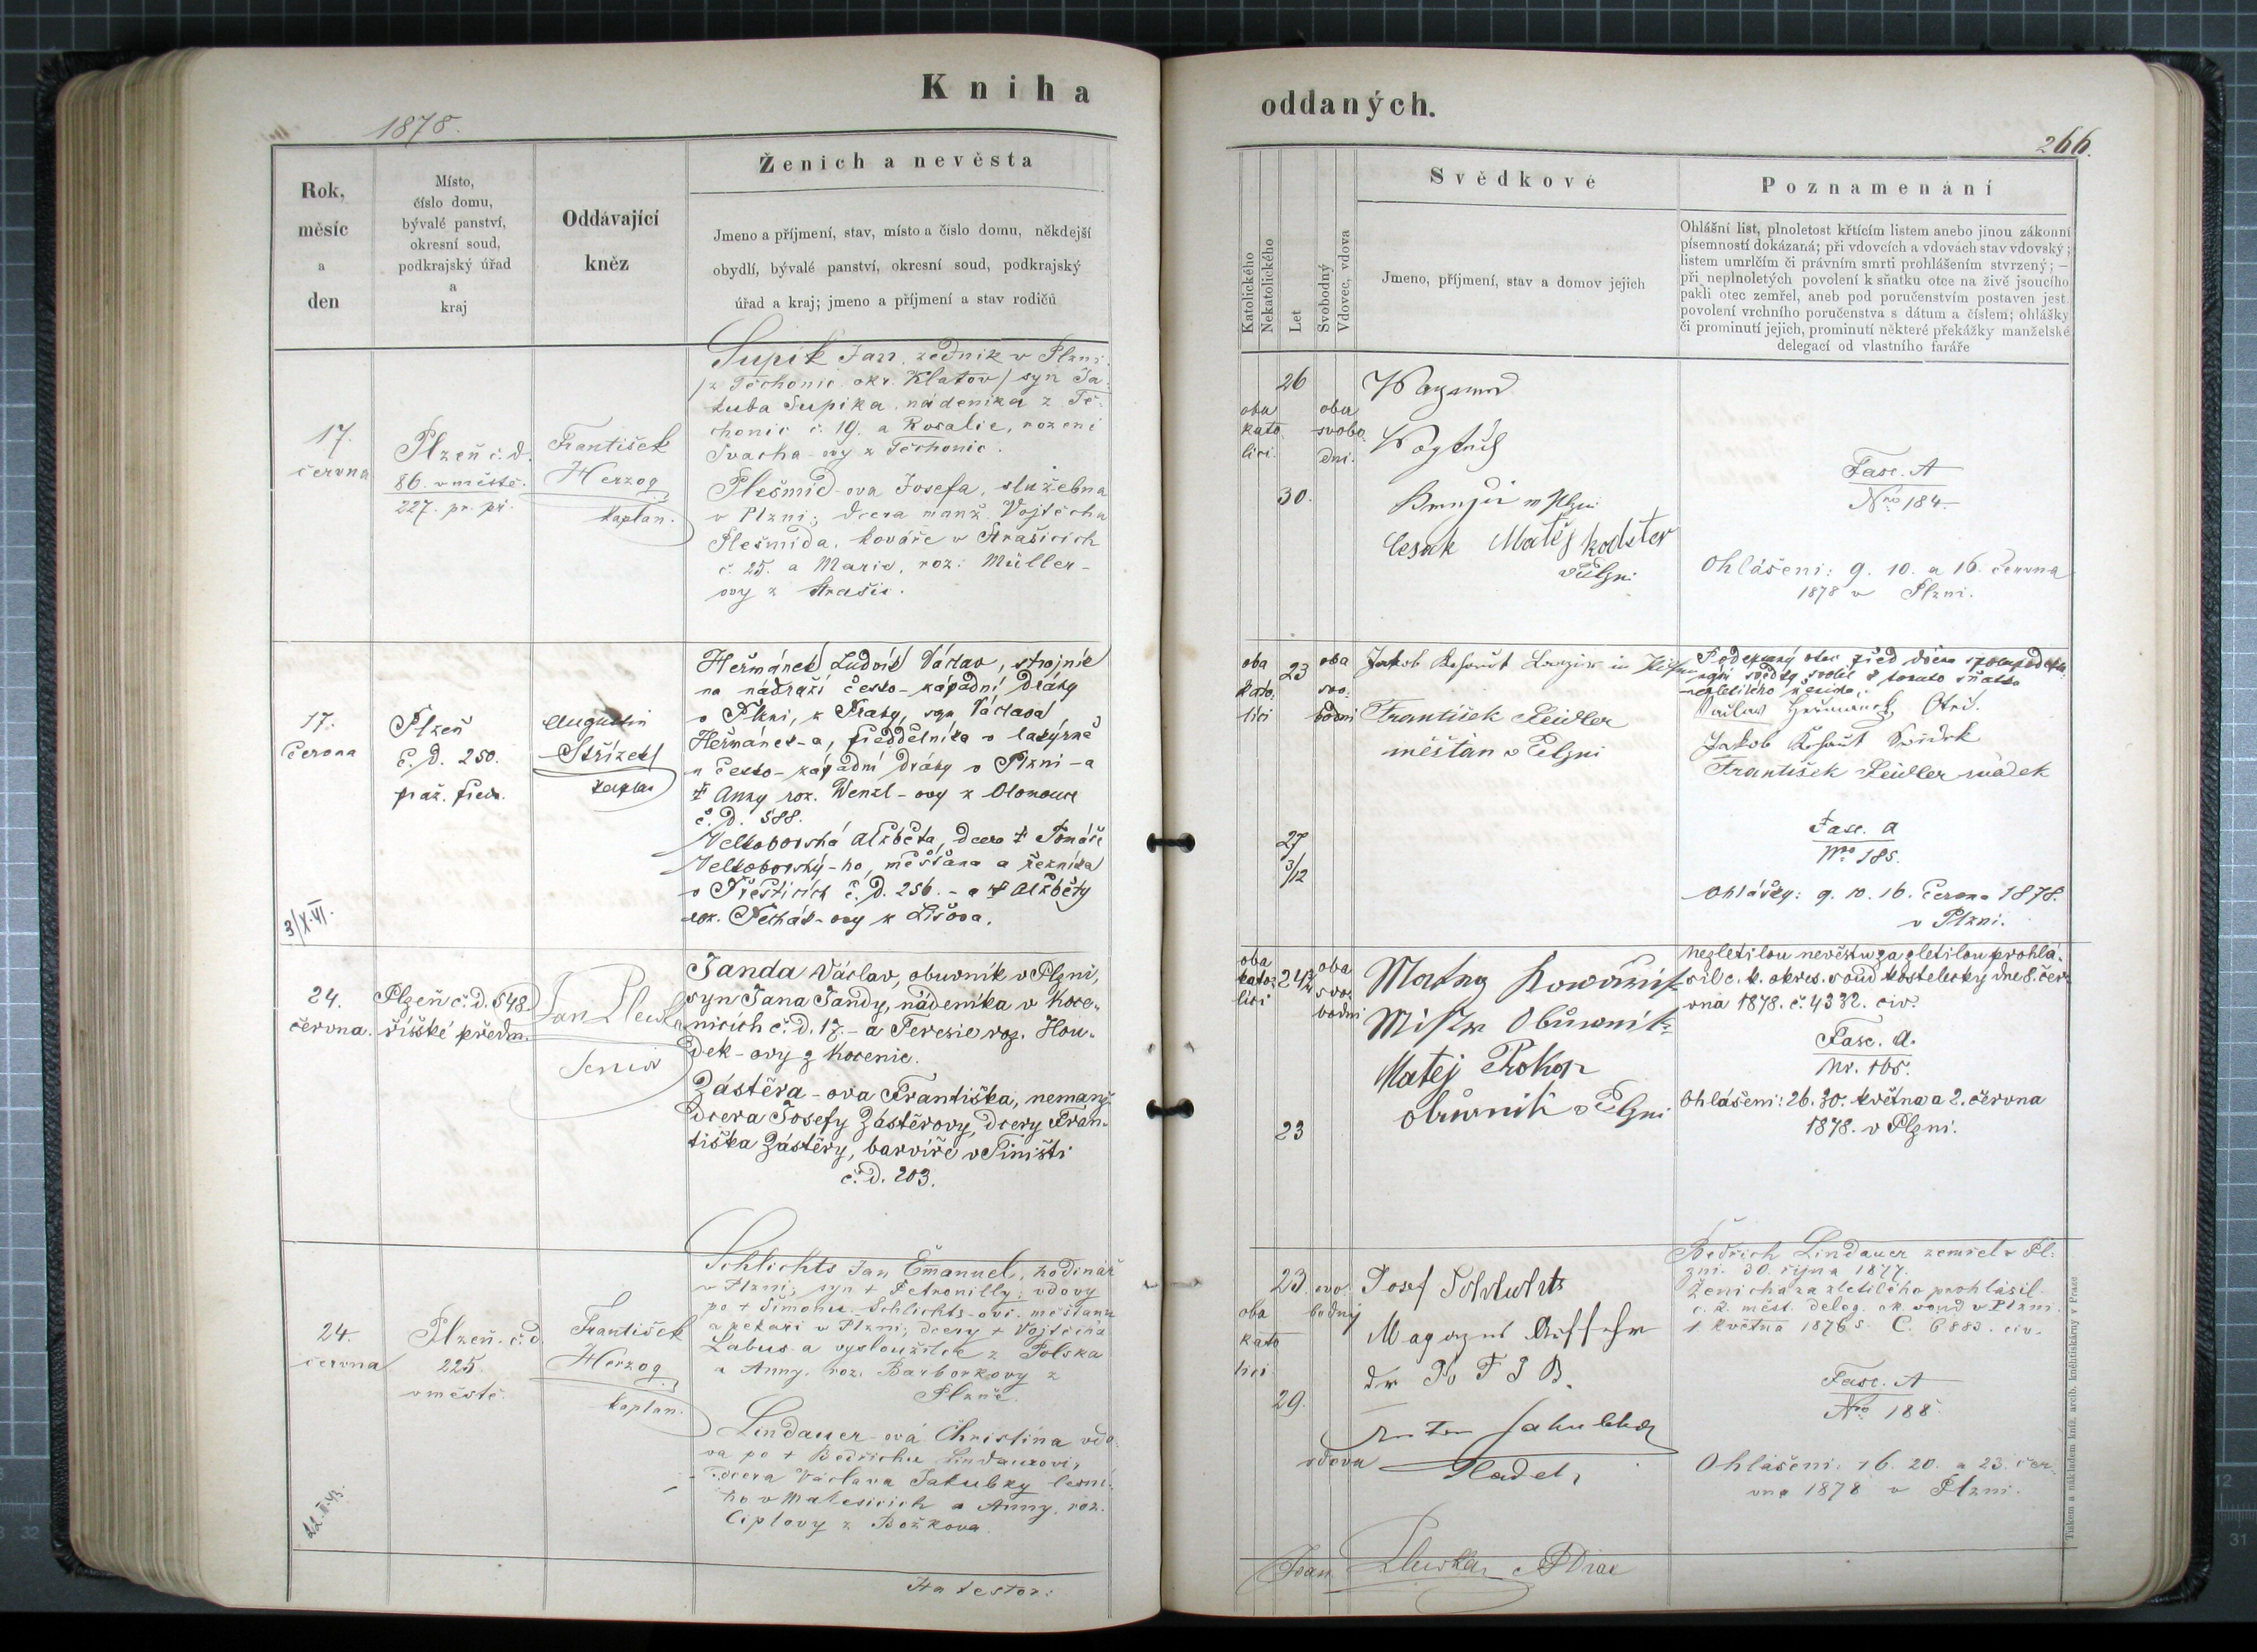 Kniha
1878.
Rok,
měsíc
a
den
Místo,
číslo domu,
bývalé panství,
okresní soud,
podkrajský úřad
a
kraj
Oddávající
kněz
Ženich a nevěsta
Jmeno a příjmení, stav, místo a číslo domu, někdejší
obydlí, bývalé panství, okresní soud, podkrajský
úřad a kraj; jmeno a příjmení a stav rodičů
17.
června
Plzeň č. d.
86. v městě.
227. pr. př.
František
Herzog
kaplan.
Supík Jan, zedník v Plzni
/z Těchonic okr. Klatov/ syn Ja-
kuba Supíka, nádeníka z Tě-
chonic č. 19. a Rosalie, rození
Švacha-ovy z Těchonic.
Plešmíd-ova Josefa, služebna
v Plzni; dcera manž. Vojtěcha
Plešmída, kováře v Strašicích
č. 25. a Marie, roz: Müller-
ovy z Strašic.
17.
června
3/X.VI.
Plzeň
č. d. 250.
praž. předm.
Augustin
Střízek
kaplan
Heřmánek Ludvík Václav, strojník
na nádraží česko-západní dráhy
v Plzni, z Prahy, syn Václava
Heřmánek-a, předdělníka v lakýrně
u česko-západní dráhy v Plzni - a
† Anny roz. Wenzl-ovy z Olomouce
č. d. 588.
Velkoborská Alžběta, dcera † Tomáše
Velkoborský-ho, měšťana a řezníka
v Přešticích č. d. 256. - a † Alžběty
roz. -ovy z Lišova.
24.
června.
Plzeň č. d. 548.
říšské předm.
Jan Plewka
Senior
Janda Václav, obuvník v Plzni,
syn Jana Jandy, nádeníka v Koce-
nicích č. d. 17. - a Terezie roz. Hou-
dek-ovy z Kocenic.
Zástěra-ova Františka, nemanž.
dcera Josefy Zástěrovy, dcery Fran-
tiška Zástěry, barvíře v Tiništi
č. d. 203.
24.
června
22.II.43.
Plzeň č. d.
225
v městě
František
Herzog
kaplan.
Schlichts Jan Emanuel, hodinář
v Plzni, syn + Petronilly, vdovy
po + Šimonu Schlichts-ovi, měšťanu
a pekaři v Plzni; dcery + Vojtěcha
Labus-a vysloužilce z Polska
a Anny, roz. Barborkovy z
Plzně.
Lindauer-ová Christina vdo-
va po + Bedřichu Lindauerovi,
dcera Václava Jakubky lesní-
ho v Malesicích a Anny, roz.
Ciplovy z Božkova.
oddaných.
266.
Katolického
Nekatolického
Let
Svobodný
Vdovec, vdova
Svědkové
Jmeno, příjmení, stav a domov jejich
Poznamenání
Ohlášní list, plnoletost křtícím listem anebo jinou zákonní
písemností dokázaná; při vdovcích a vdovách stav vdovský;
listem umrlčím či právním smrti prohlášením stvrzený; —
při neplnoletých povolení k sňatku otce na živě jsoucího
pakli otec zemřel, aneb pod poručenstvím postaven jest
povolení vrchního poručenstva s dátum a číslem; ohlášky
či prominutí jejich, prominutí některé překážky manželské
delegací od vlastního faráře
26
oba
kato
líci.
oba
svobo
dni.
30.
Matěj
Fasc. A
Nro 184.
Ohlášeni: 9. 10. a 16. června
1878 v Plzni.
oba
kato
líci
23
oba
svo-
bodni
27
3/12
Jakob
František Zeidler
měšťan v Plzni
Podepsaný otec před dvěma
svědky svolil k tomuto sňatku
nezletilého ženicha.
Václav Heřmanek Otec.
Jakob Svědek
František Zeidler svědek
Fasc. A
Nro 185.
Ohlášky: 9. 10. 16. června 1878.
v Plzni.
oba
kato-
líci
24
oba
svo-
bodni
23
Mistr Obuwnik
Matej Prokop
obuwnik v Plzni
Nezletilou nevěstu za zletilou prohlá-
sil c. k. okres. soud kostelecký dne 8. čer-
vna 1878. č. 4332. civ.
Fasc. A.
Nr. 165.
Ohlášeni: 26. 30. května a 2. června
1878. v Plzni.
23.
svo-
bodný
oba
kato
líci
29.
vdova
Josef Schlichts
Bedřich Lindauer zemřel v Pl-
zni 30. října 1877.
Ženicha za zletilého prohlásil
c. k. měst. deleg. ok. soud v Plzni
1 května 1876 s. C. 6883. civ.
Fasc. A
Nro 188.
Ohlášeni: 16. 20. a 23. čer-
vna 1878 v Plzni.
Tiskem a nákladem kníž. arcib. knihtiskárny v Praze